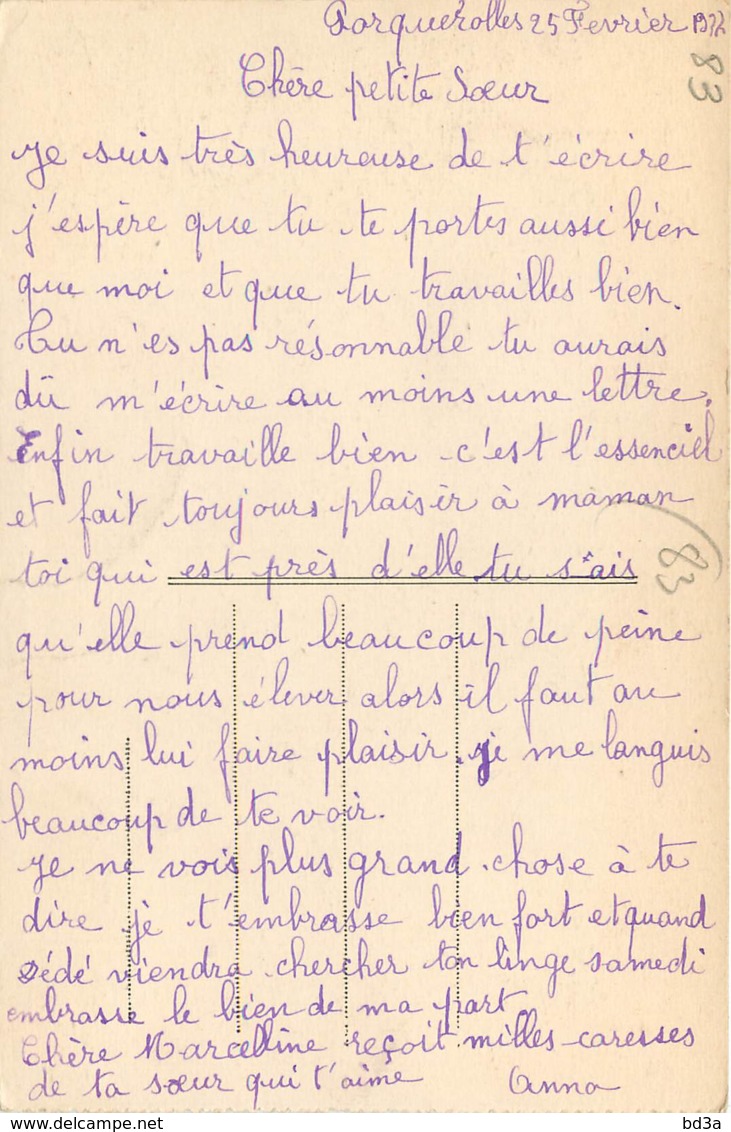 Porquerolles 25 Fevrier
83
Chère petite Sœur
Je suis très heureuse de t'écrire
j'espère que tu te portes aussi bien
que moi et que tu travailles bien.
Tu n'es pas résonnable tu aurais
dû m'écrire au moins une lettre.
Enfin travaille bien c'est l'essenciel
et fait toujours plaisir à maman
toi qui est près d'elle tu sais
83
qu'elle prend beaucoup de peine
pour nous élever alors il faut au
moins lui faire plaisir. je me languis
beaucoup de te voir.
Je ne vois plus grand chose à te
dire je t'embrasse bien fort et quand
Dédé viendra chercher ton linge samedi
embrasse le bien de ma part
Chère Marcelline reçoit milles caresses
de ta sœur qui t'aime Anna
delcampe.net
bd3a